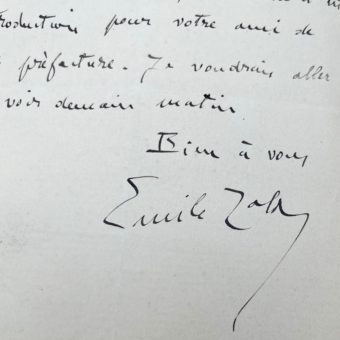 troduction pour votre ami de
préfecture. Je voudrais aller
voir demain matin
Bien à vous
Emile Zola